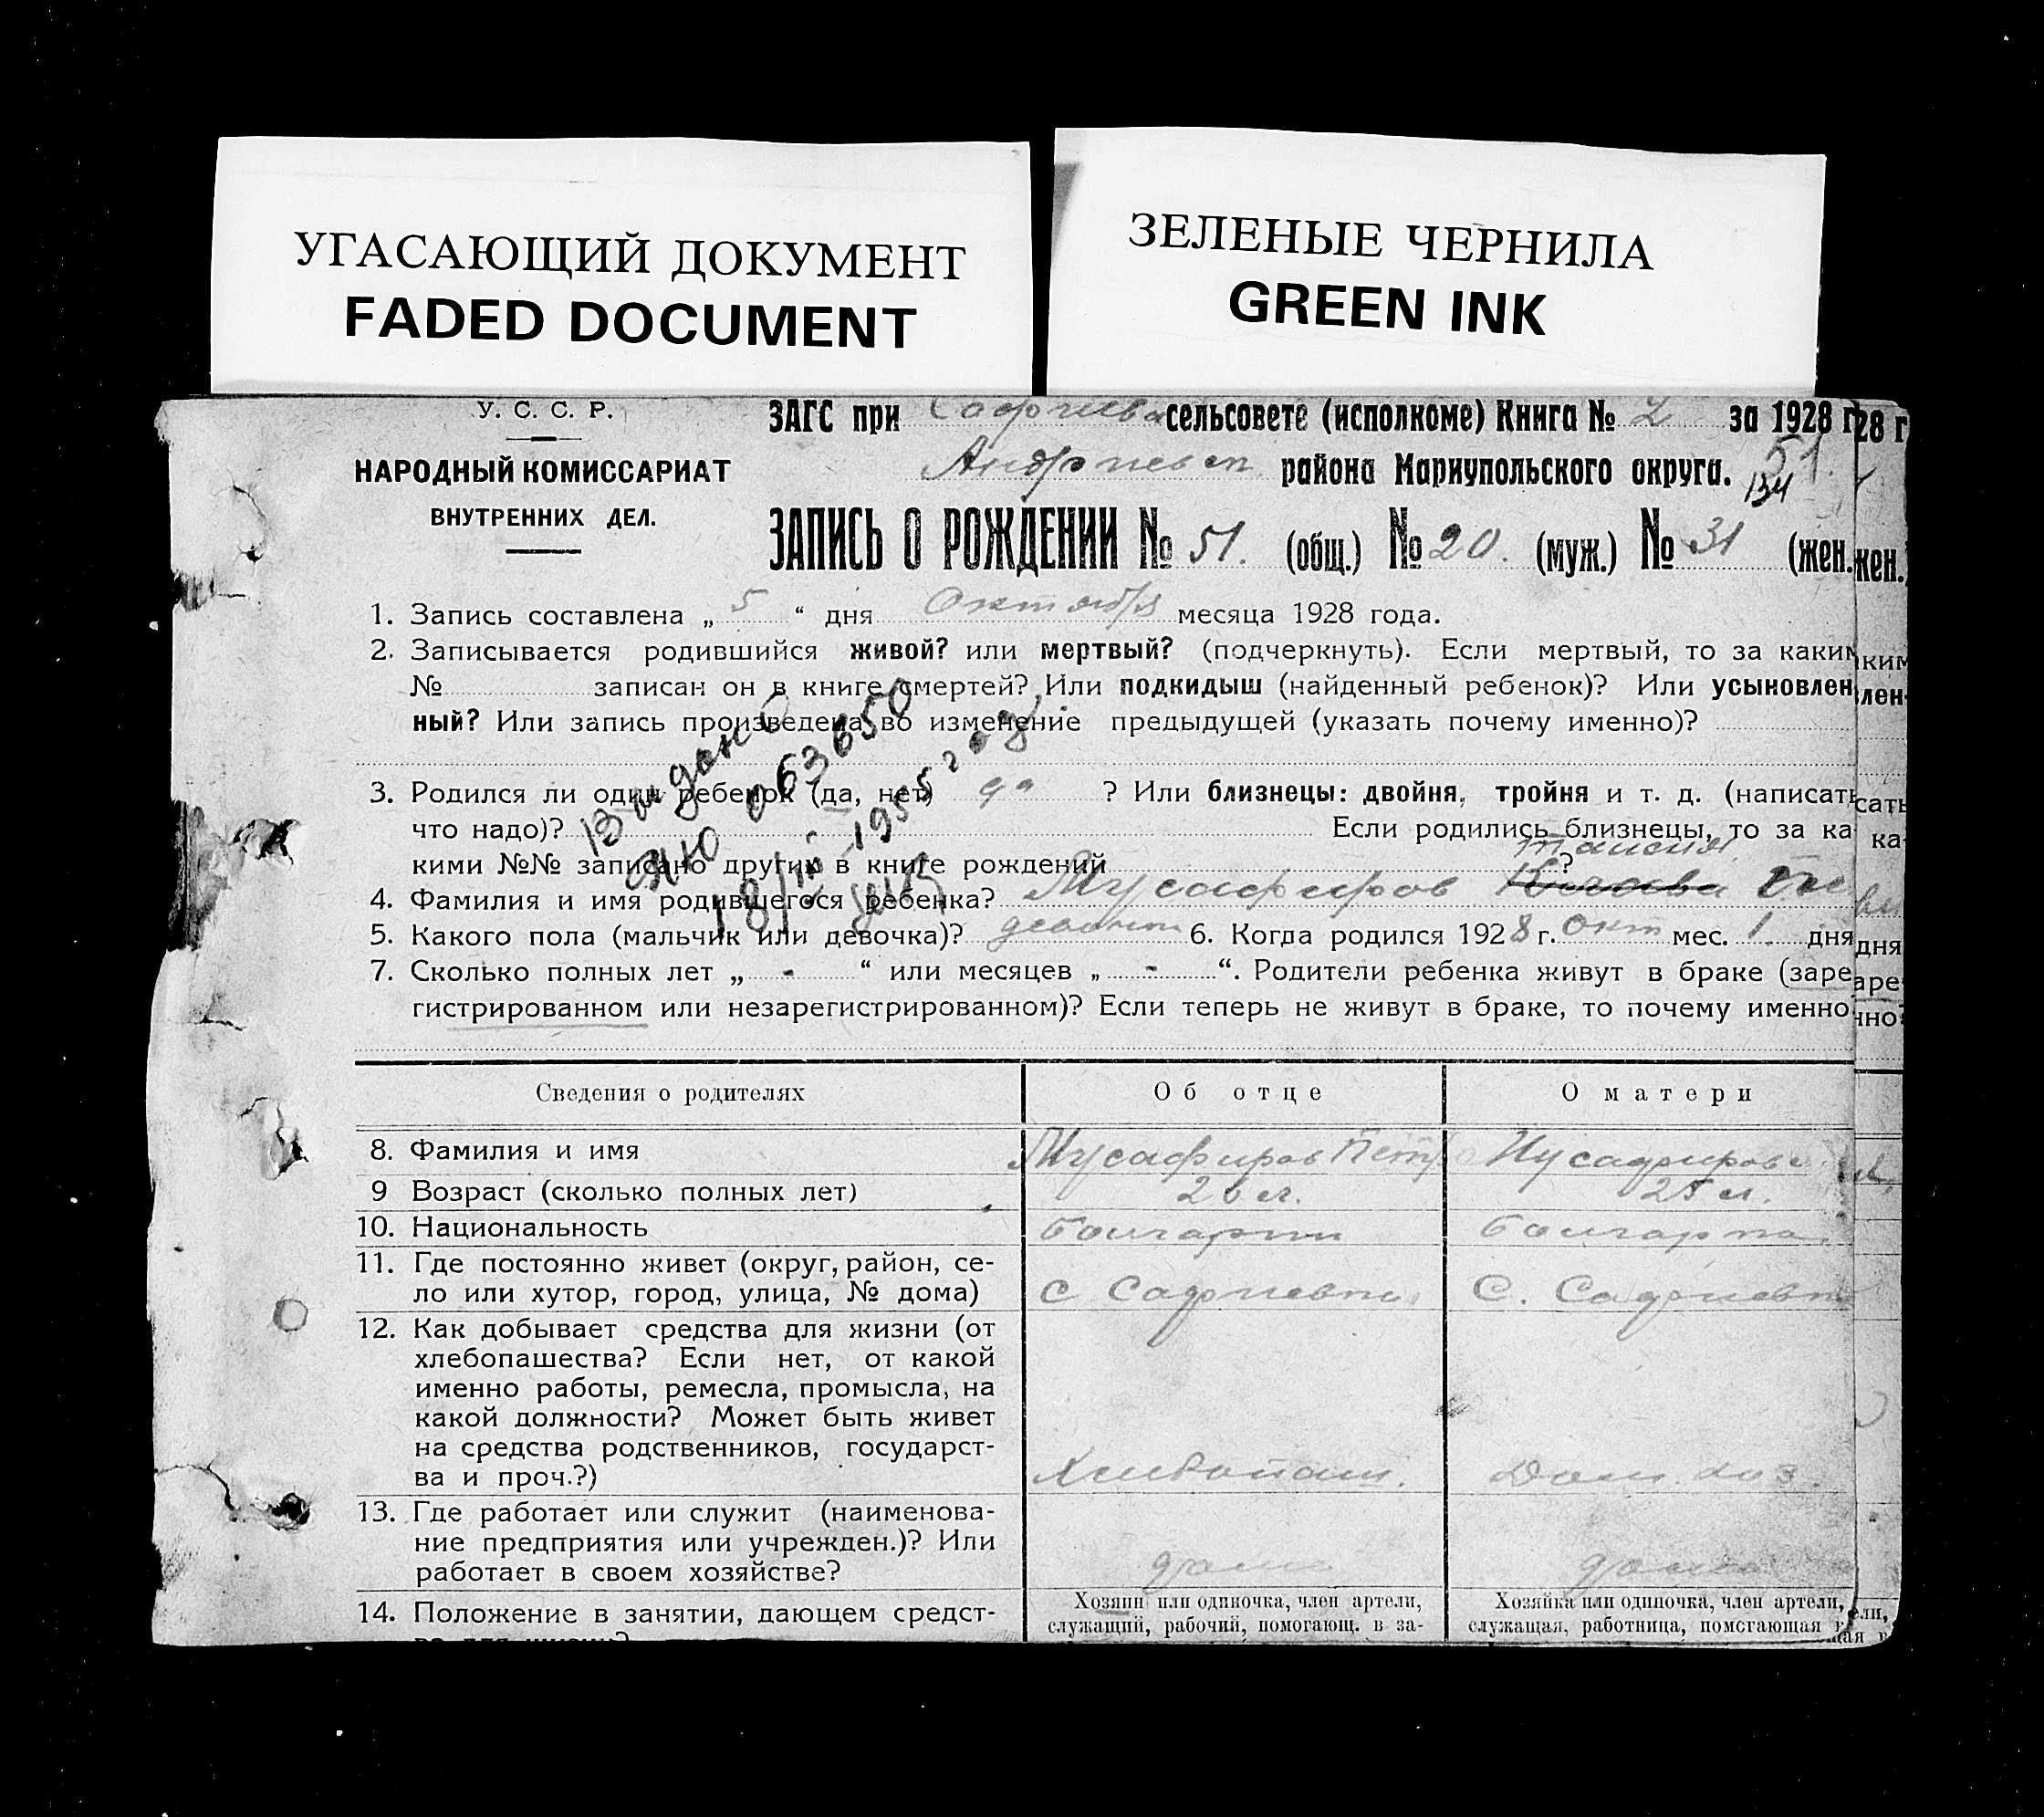 УГАСАЮЩИЙ ДОКУМЕНТ
FADED DOCUMENT
ЗЕЛЕНЫЕ ЧЕРНИЛА
GREEN INK
У. С. С. Р.
НАРОДНЫЙ КОМИССАРИАТ
ВНУТРЕННИХ ДЕЛ.
ЗАГС при сельсовете (исполкоме) Книга № 2 за 1928 г
района Мариупольского округа.
51.
134
ЗАПИСЬ О РОЖДЕНИИ № 51. (общ.) № 20. (муж.) № 31 (жен.
1. Запись составлена „ 5 “ дня Октября месяца 1928 года.
2. Записывается родившийся живой? или мертвый? (подчеркнуть). Если мертвый, то за каким
№ записан он в книге смертей? Или подкидыш (найденный ребенок)? Или усыновлен
ный? Или запись произведена во изменение предыдущей (указать почему именно)?
3. Родился ли один ребенок (да, нет) да ? Или близнецы: двойня, тройня и т. д. (написать
что надо)? Если родились близнецы, то за ка
кими №№ записано других в книге рождений ?
4. Фамилия и имя родившегося ребенка? Мусафиров
5. Какого пола (мальчик или девочка)? 6. Когда родился 1928 г. окт мес. 1 дня
7. Сколько полных лет „ - “ или месяцев „ - “. Родители ребенка живут в браке (заре
гистрированном или незарегистрированном)? Если теперь не живут в браке, то почему именно
Видано
ЯЮ 063650
1955
Сведения о родителях Об отце О матери
8. Фамилия и имя Мусафиров Петр Мусафирова
9 Возраст (сколько полных лет) 25 л.
10. Национальность болгарин болгарка
11. Где постоянно живет (округ, район, се-
ло или хутор, город, улица, № дома) с С.
12. Как добывает средства для жизни (от
хлебопашества? Если нет, от какой
именно работы, ремесла, промысла, на
какой должности? Может быть живет
на средства родственников, государст-
ва и проч.?) Хлебопаш. Дом. хоз.
13. Где работает или служит (наименова-
ние предприятия или учрежден.)? Или
работает в своем хозяйстве? дома дома
14. Положение в занятии, дающем средст-
Хозяин или одиночка, член артели,
служащий, рабочий, помогающ. в за-
Хозяйка или одиночка, член артели,
служащая, работница, помогающая